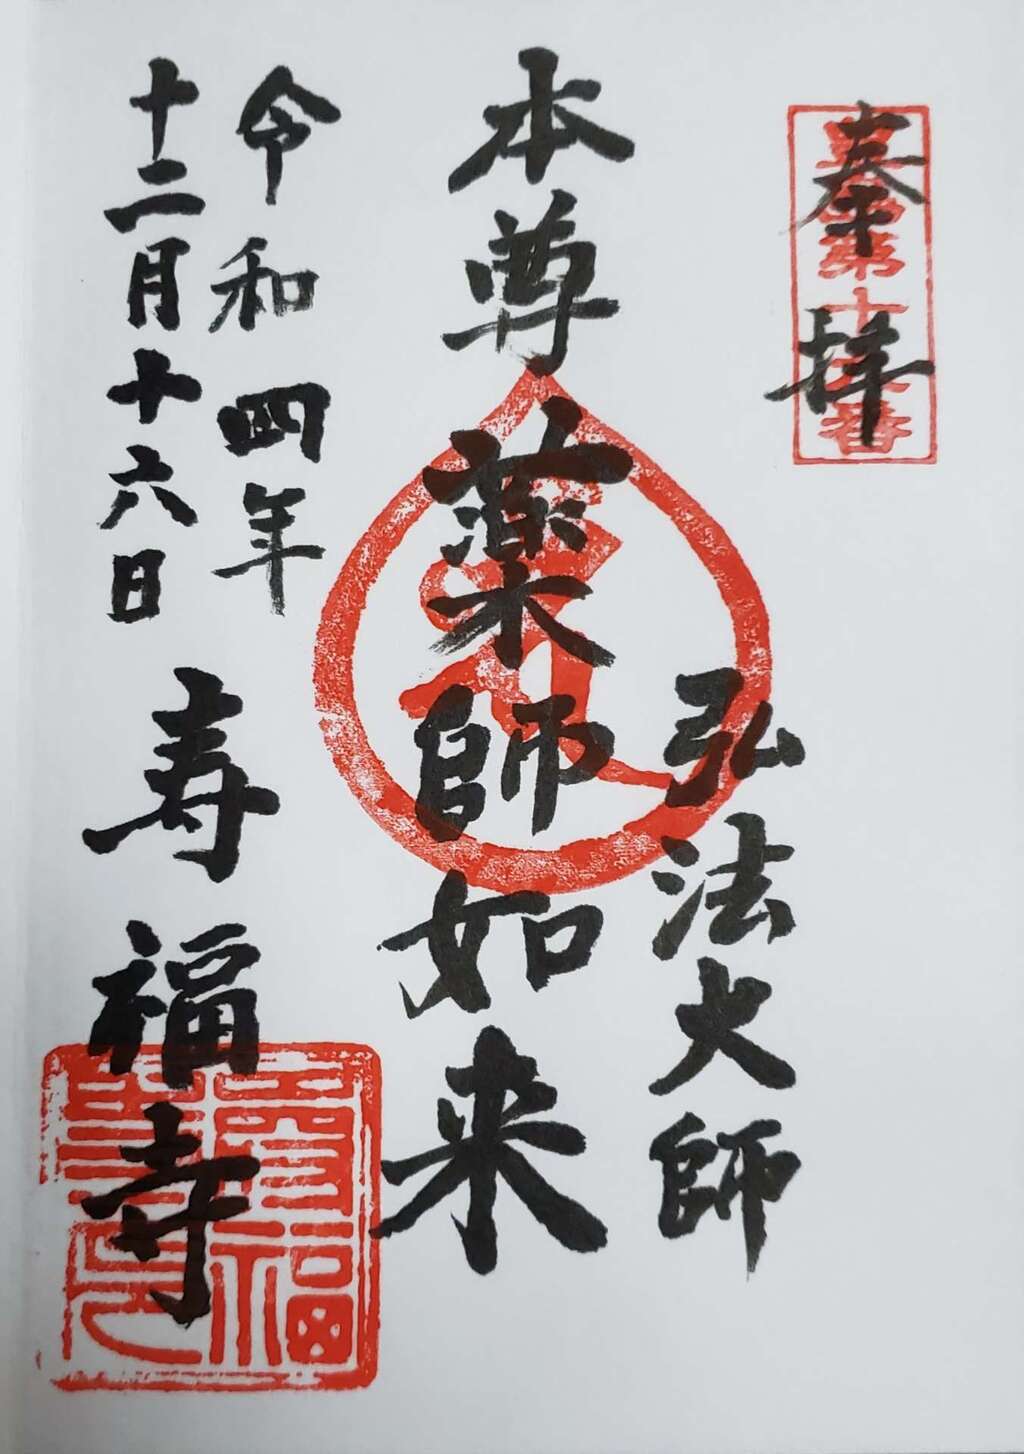 奉拝
弘法大師
本尊薬師如来
令和四年
十二月十六日
寿福寺